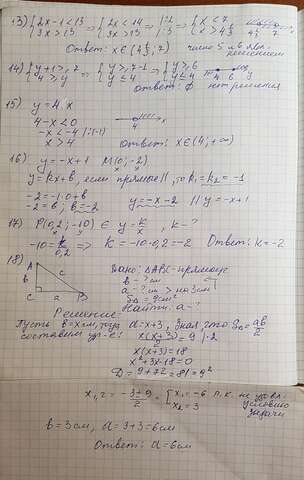 13) {2x-1<13 3x>13 => {2x<14 3x>13 |:2 |:3 => {x<7 x>4⅓
Ответ: x∈(4⅓; 7) число 5 и 6 явл. решением
14) {y+1>7 4≥y => {y>7-1 y≤4 => {y>6 y≤4 4 6 y
Ответ: ∅ нет решения
15) y=4-x
4-x<0
-x<-4 |:(-1)
x>4 Ответ: x∈(4; +∞)
16) y=-x+1 M(0;-2)
y=kx+b, если прямые ||, то k₁=k₂=-1
-2=-1·0+b
-2=b; b=-2 y=-x-2 || y=-x+1
17) P(0,2; -10) ∈ y=k/x, k-?
-10=k/0,2 => k=-10·0,2=-2 Ответ: k=-2
18) Дано: △ABC-прямоуг
b-? см
a-? см > на 3см
S△=9см²
Найти: a-?
A b c C a B
Решение:
Пусть b=x см, тогда a=x+3, зная, что S△=ab/2
составим ур-е: x(x+3)/2=9 |·2
x(x+3)=18
x²+3x-18=0
D=9+72=81=9²
x₁,₂=(-3±9)/2=[x₁=-6 п.к. не удовл. условию задачи
x₂=3
b=3см, a=3+3=6см
Ответ: a=6см